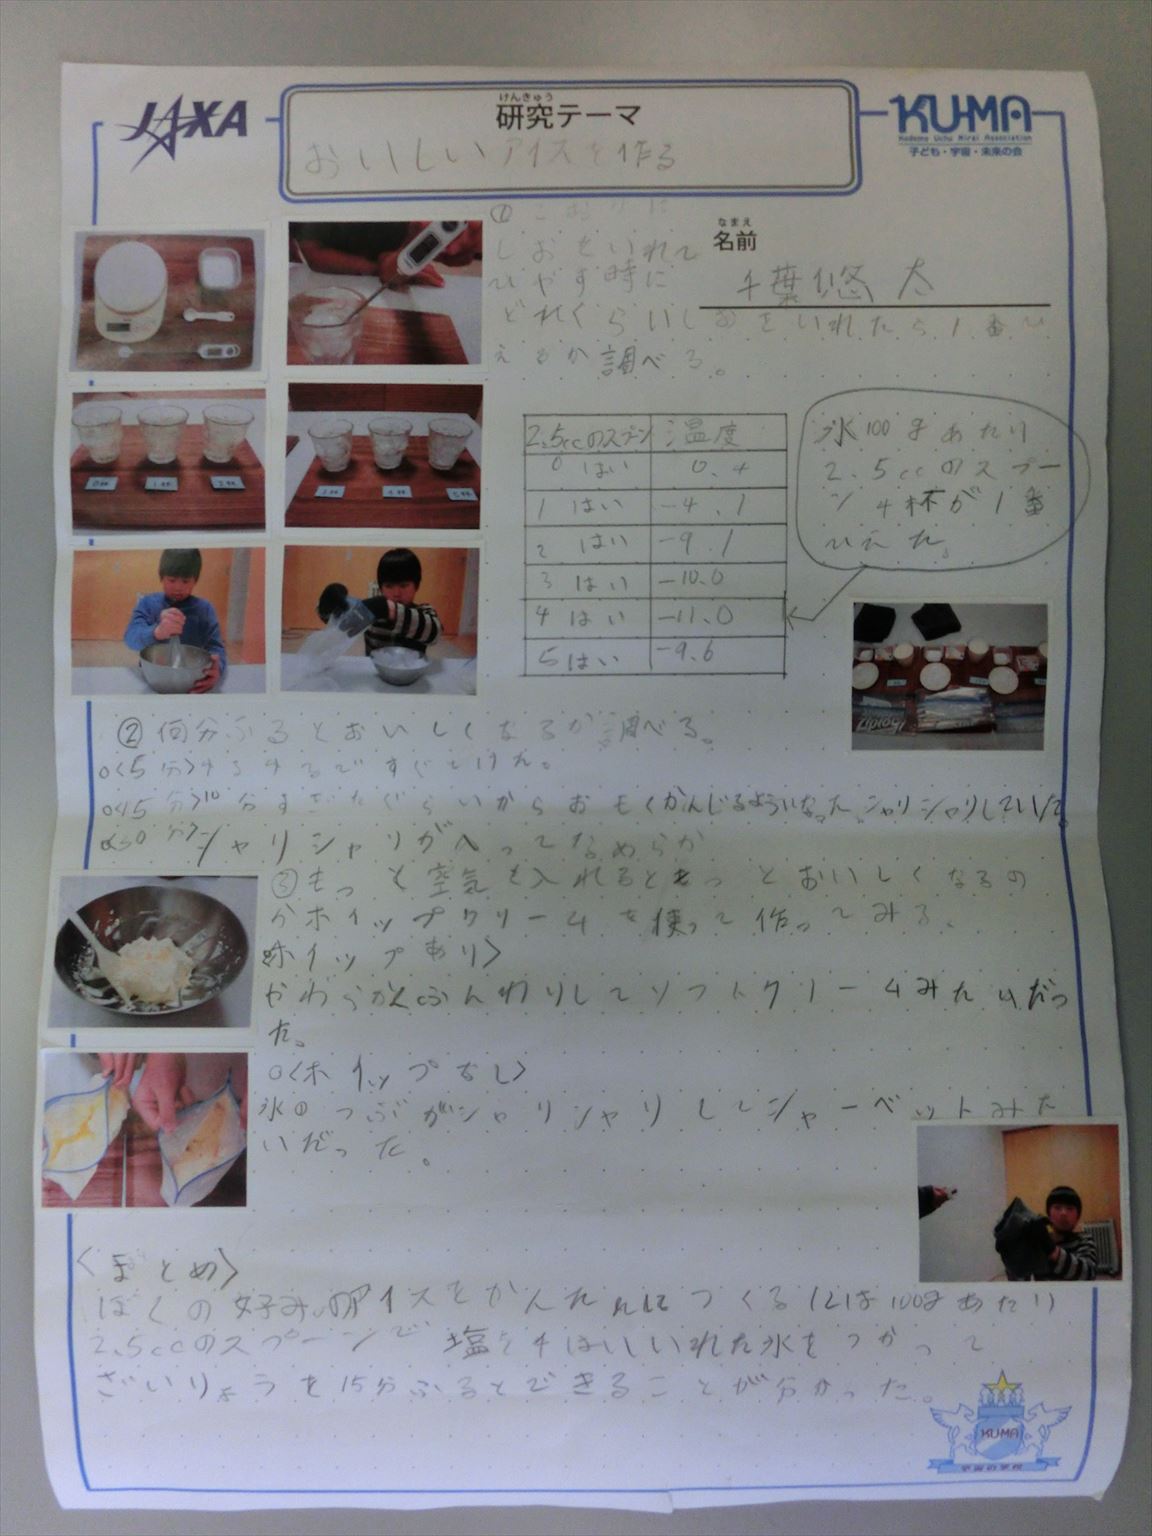 JAXA
けんきゅう
研究テーマ
おいしいアイスを作る
KU-MA
Kodomo Uchu Mirai Association
子ども・宇宙・未来の会
なまえ
名前
千葉悠太
①こおりに
しおをいれて
ひやす時に
どれくらいしおをいれたら1番ひ
えるか調べる。
2.5ccのスプーン 温度
0はい 0.4
1はい -4.1
2はい -9.1
3はい -10.0
4はい -11.0
5はい -9.6
氷100gあたり
2.5ccのスプー
ン4杯が1番
ひえた。
②何分ふるとおいしくなるか調べる。
○〈5分〉するするですぐとけた。
○〈15分〉10分すぎたぐらいからおもくかんじるようになった。シャリシャリしていた。
○〈30分〉シャリシャリがへってなめらか
③もっと空気を入れるともっとおいしくなるの
かホイップクリームを使って作ってみる。
ホイップあり〉
やわらかくふんわりしてソフトクリームみたいだっ
た。
○〈ホイップなし〉
氷のつぶがシャリシャリしてシャーベットみた
いだった。
〈まとめ〉
ぼくの好みのアイスをかんたんにつくるには100gあたり
2.5ccのスプーンで塩を4はいいれた氷をつかって
ざいりょうを15分ふるとできることが分かった。
KUMA